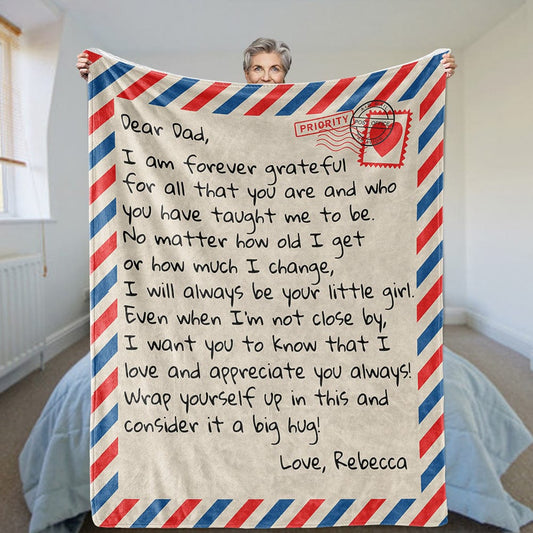 PRIORITY
Dear Dad,
I am forever grateful
for all that you are and who
you have taught me to be.
No matter how old I get
or how much I change,
I will always be your little girl.
Even when I'm not close by,
I want you to know that I
love and appreciate you always!
Wrap yourself up in this and
consider it a big hug!
Love, Rebecca